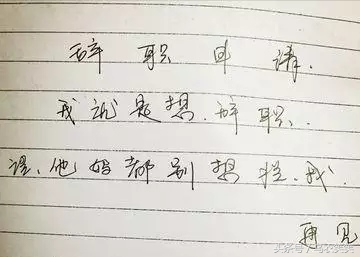 辞职申请.
我就是想.辞职.
谁、他妈都别想拦.我.
再见